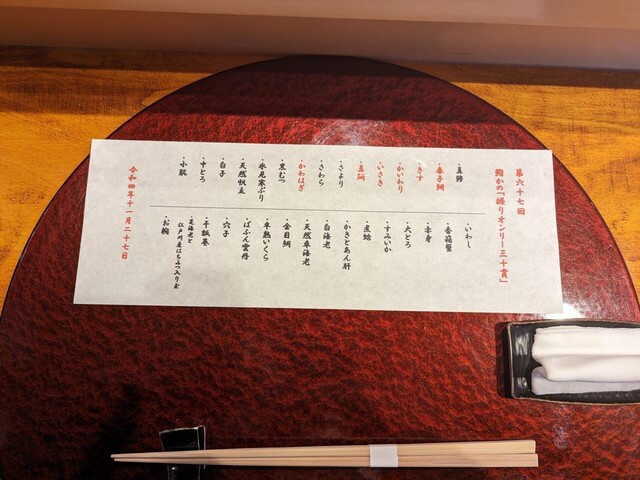 第六十七回
鮨かの「握りオンリー三十貫」
・真鯛
・春子鯛
・きす
・かいわり
・いさき
・真鯛
・さより
・さわら
・かわはぎ
・黒むつ
・氷見寒ぶり
・天然帆立
・白子
・中とろ
・小肌
・いわし
・香箱蟹
・赤身
・大とろ
・すみいか
・真蛸
・かきとあん肝
・白海老
・天然車海老
・金目鯛
・半熟いくら
・ばふん雲丹
・穴子
・干瓢巻
・芝海老と
江戸川産はちみつ入り玉
・お椀
令和四年十一月二十七日